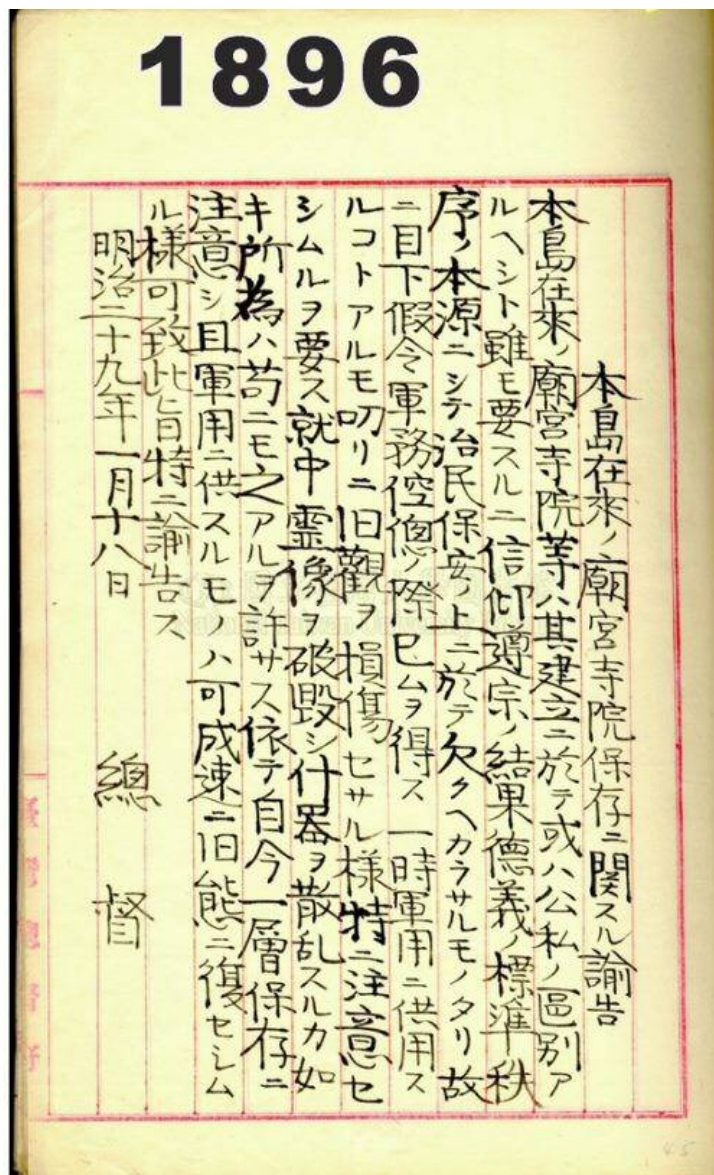 1896
本島在來ノ廟宮寺院保存ニ関スル諭告
本島在來ノ廟宮寺院等ハ其建立ニ於テ或ハ公私ノ區別ア
ルヘシト雖モ要スルニ信仰遵宗ノ結果德義ノ標準秩
序ノ本源ニシテ治民保安ノ上ニ於テ欠クヘカラサルモノタリ故
ニ目下假令軍務倥偬ノ際已ムヲ得ス一時軍用ニ供用ス
ルコトアルモ叨リニ旧觀ヲ損傷セサル樣特ニ注意セ
シムルヲ要ス就中霊像ヲ破毀シ什器ヲ散乱スルカ如
キ所為ハ苟ニモ之アルヲ許サス依テ自今一層保存ニ
注意シ且軍用ニ供スルモノハ可成速ニ旧態ニ復セシム
ル樣可致此旨特ニ諭告ス
明治二十九年一月十八日
總督
臺灣總督府
45